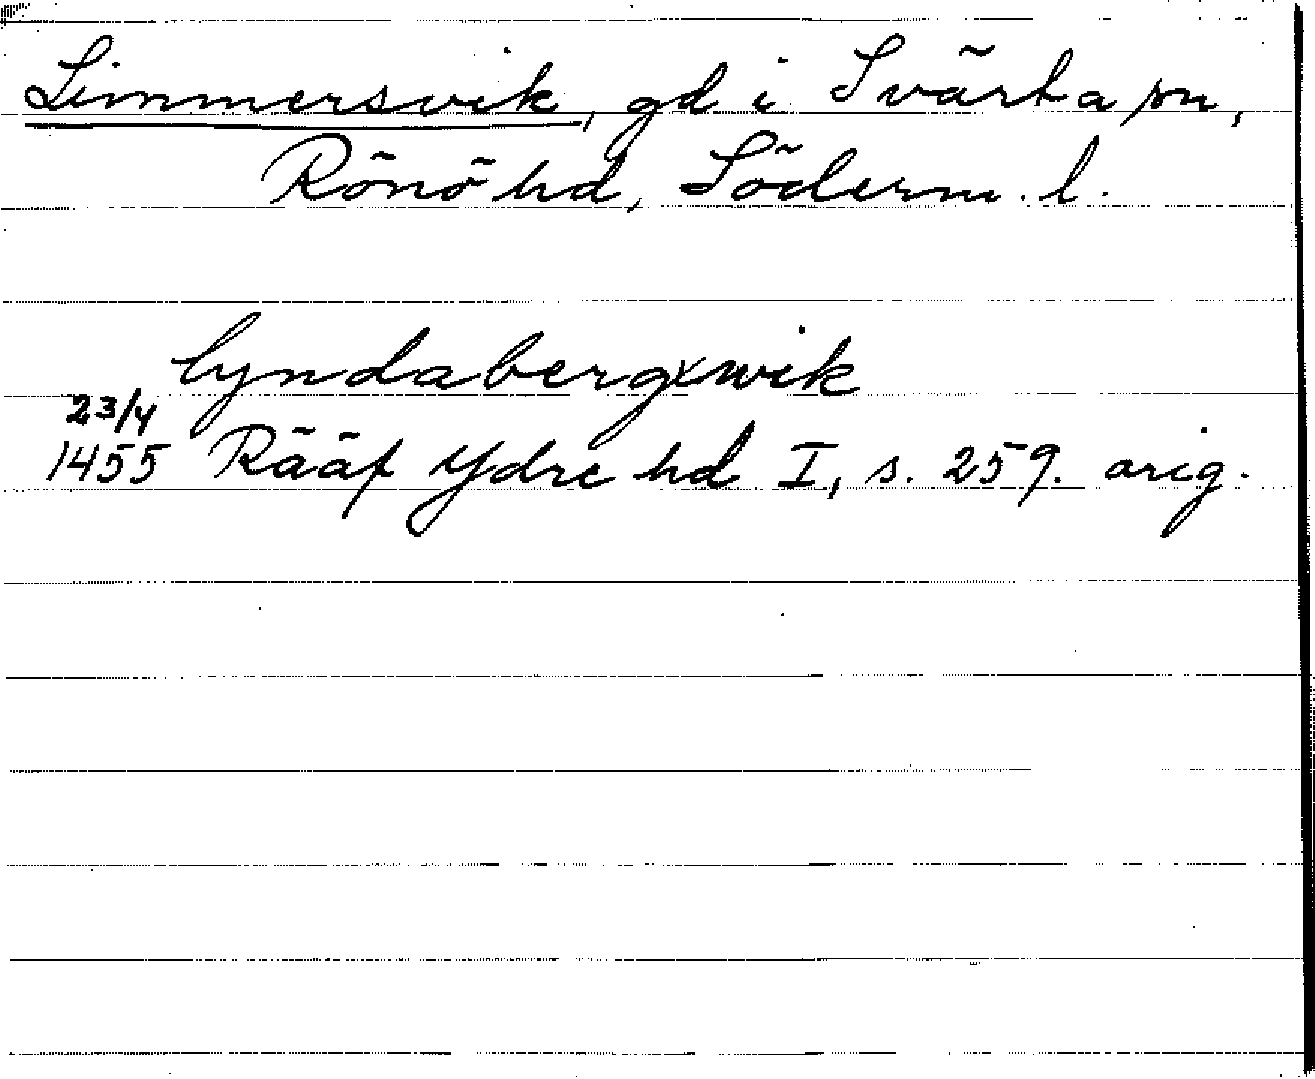 Limmersvik, gd i Svärta sn,
Rönö hd, Söderm. l.
lyndabergxwik
23/4
1455 Rääf Ydre hd I, s. 259. orig.